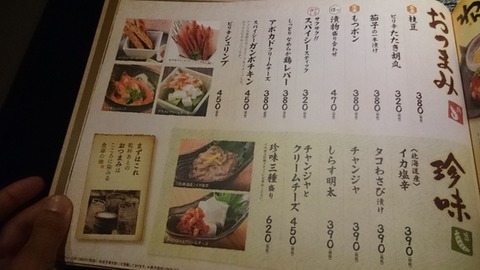 おつまみ
枝豆
380
ピリ辛たたき胡瓜
320
茄子の一本漬け
380
もつポン
380
漬物盛り合わせ
470
サクサク!!
スパイシースティック
320
しっとりなめらか鶏レバー
380
アボカドクリームチーズ
380
スパイシーガンボチキン
450
ピリ辛シュリンプ
450
珍味
〈北海道産〉
イカ塩辛
390
タコわさび漬け
390
チャンジャ
390
しらす明太
390
チャンジャと
クリームチーズ
450
珍味三種盛り
620
まずはこれ
おつまみは